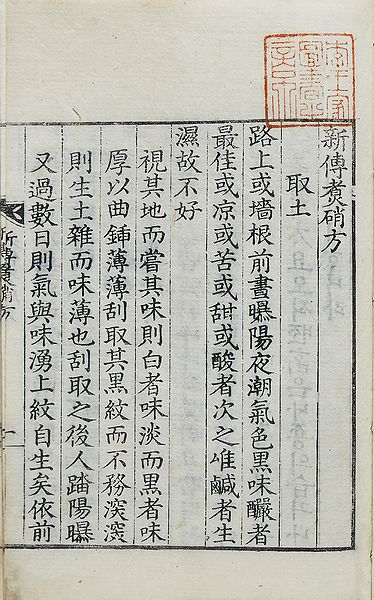 李王家圖書之章
新傳煑硝方
取土
路上或墻根前晝曝陽夜潮氣色黑味釅者
最佳或凉或苦或甜或酸者次之惟鹹者生
濕故不好
視其地而嘗其味則白者味淡而黑者味
厚以曲鍤薄薄刮取其黑紋而不務深深
則生土雜而味薄也刮取之後人踏陽曝
又過數日則氣與味湧上紋自生矣依前
新傳煑硝方 一